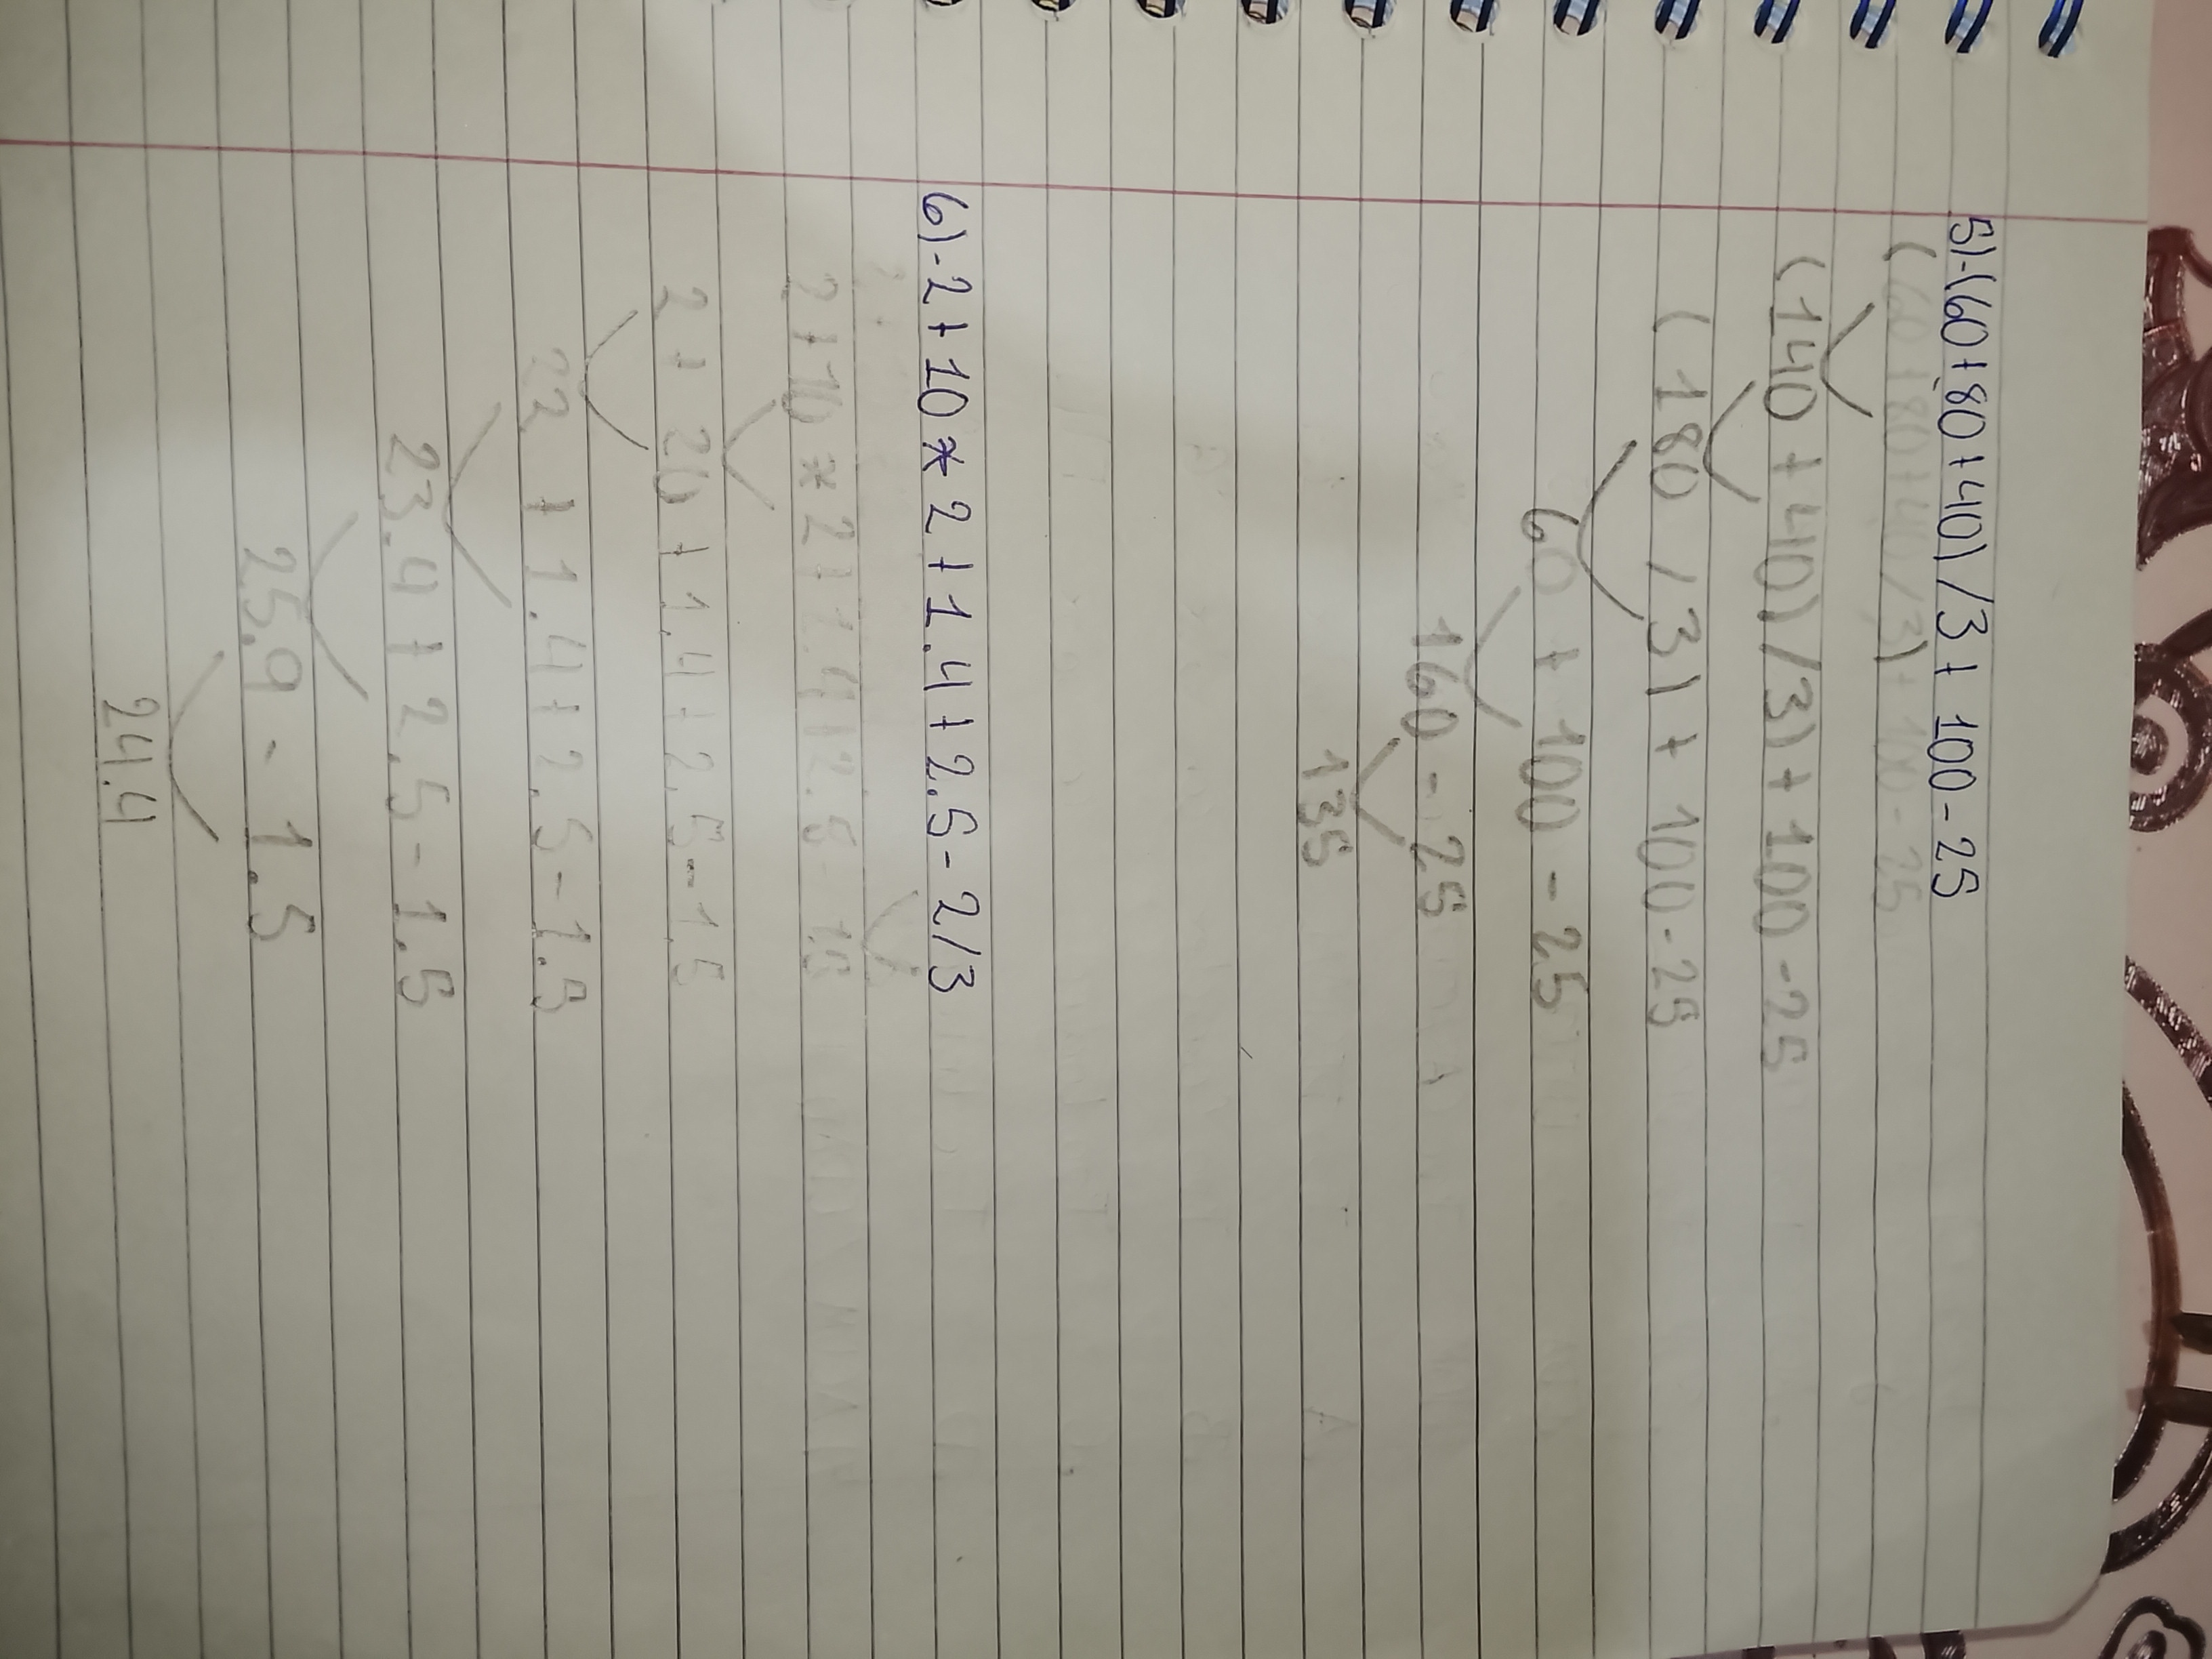 5)-(60+80+40)/3+ 100-25
(60+80+40/3)+100-25
(140+40)/3)+100-25
(180/3)+100-25
60+100-25
160-25
135
6)-2+10*2+1.4+2.5-2/3
2+10*2+1.4+2.5-1.5
2+20+1.4+2.5-1.5
22+1.4+2.5-1.5
23.4+2.5-1.5
25.9-1.5
24.4